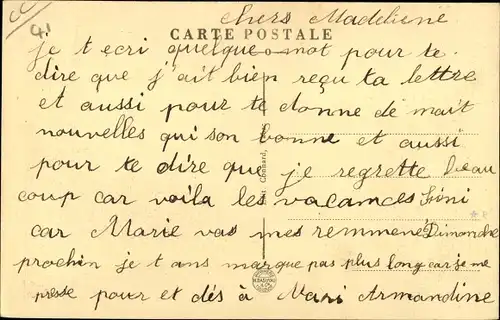 41
chers Madeleine
CARTE POSTALE
je t ecri quelque mot pour te
dire que j'ait bien reçu ta lettre
et aussi pour te donne de mait
nouvelles qui son bonne et aussi
pour te dire que je regrette beau
coup car voila les vacances fini
car Marie vas mes remmené Dimanche
prochin je t ans marque pas plus long car je me
presse pour et dés à Mari Armandine